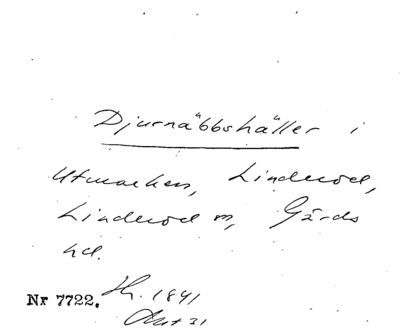 Djurnäbbshäller i
Utmarken, Linderöd,
Linderöd sn, Gärds
hd.
Nr 7722. 1841